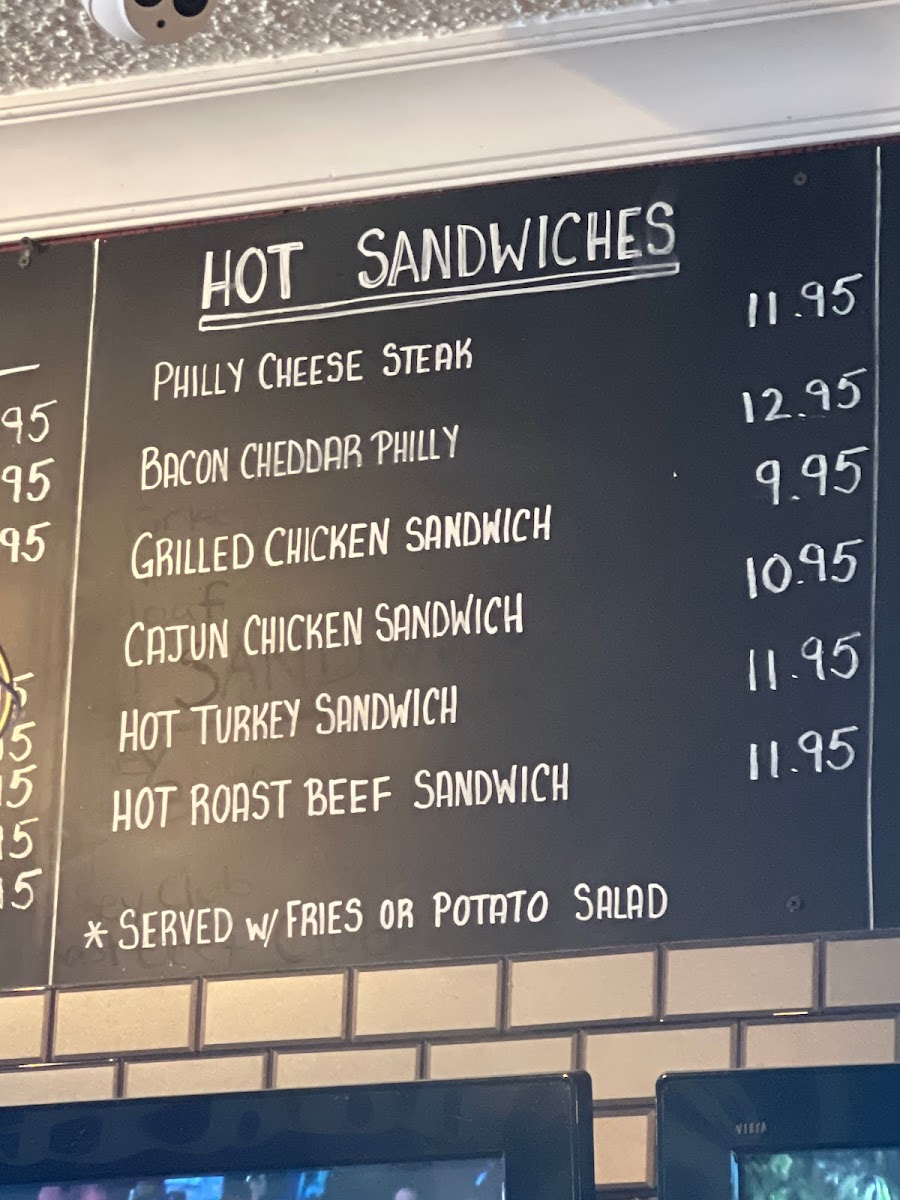 HOT SANDWICHES
PHILLY CHEESE STEAK 11.95
BACON CHEDDAR PHILLY 12.95
GRILLED CHICKEN SANDWICH 9.95
CAJUN CHICKEN SANDWICH 10.95
HOT TURKEY SANDWICH 11.95
HOT ROAST BEEF SANDWICH 11.95
* SERVED W/ FRIES OR POTATO SALAD
95
95
95
5
15
15
15
15
VIERA